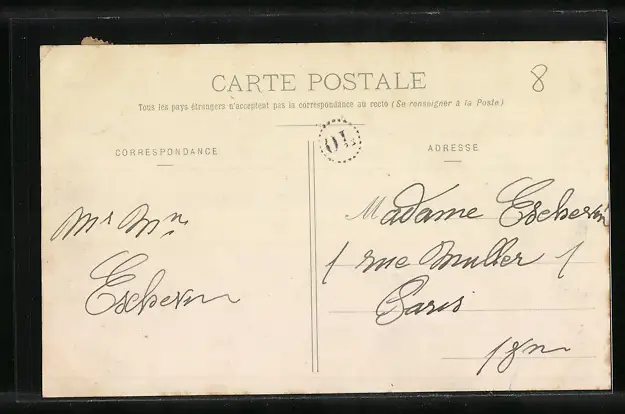 8
CARTE POSTALE
Tous les pays étrangers n'acceptent pas la correspondance au recto (Se renseigner à la Poste)
OL
CORRESPONDANCE
Mr Mme
ADRESSE
Madame
1 rue Muller 1
Paris
18me